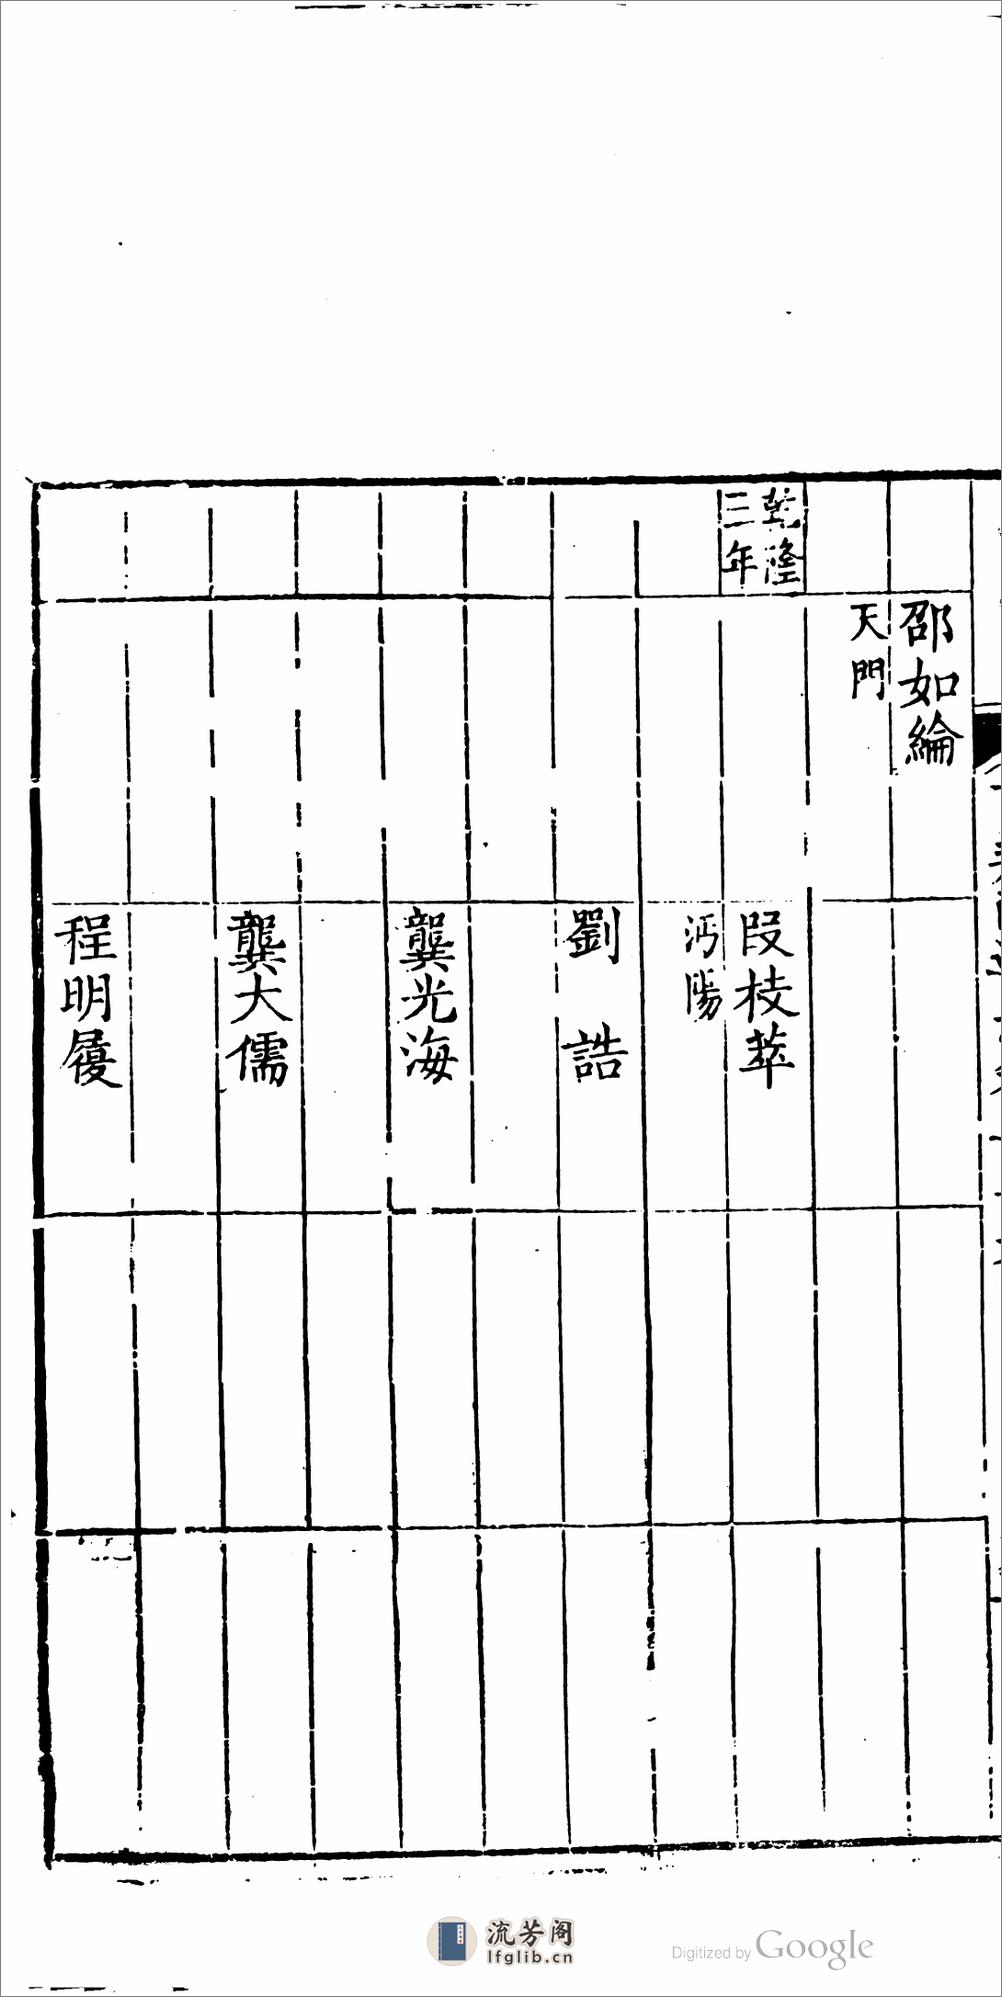 邵如綸
天門
乾隆
三年
段枝萃
沔陽
劉誥
龔光海
龔大儒
程明履
流芳阁
lfglib.cn
Digitized by Google